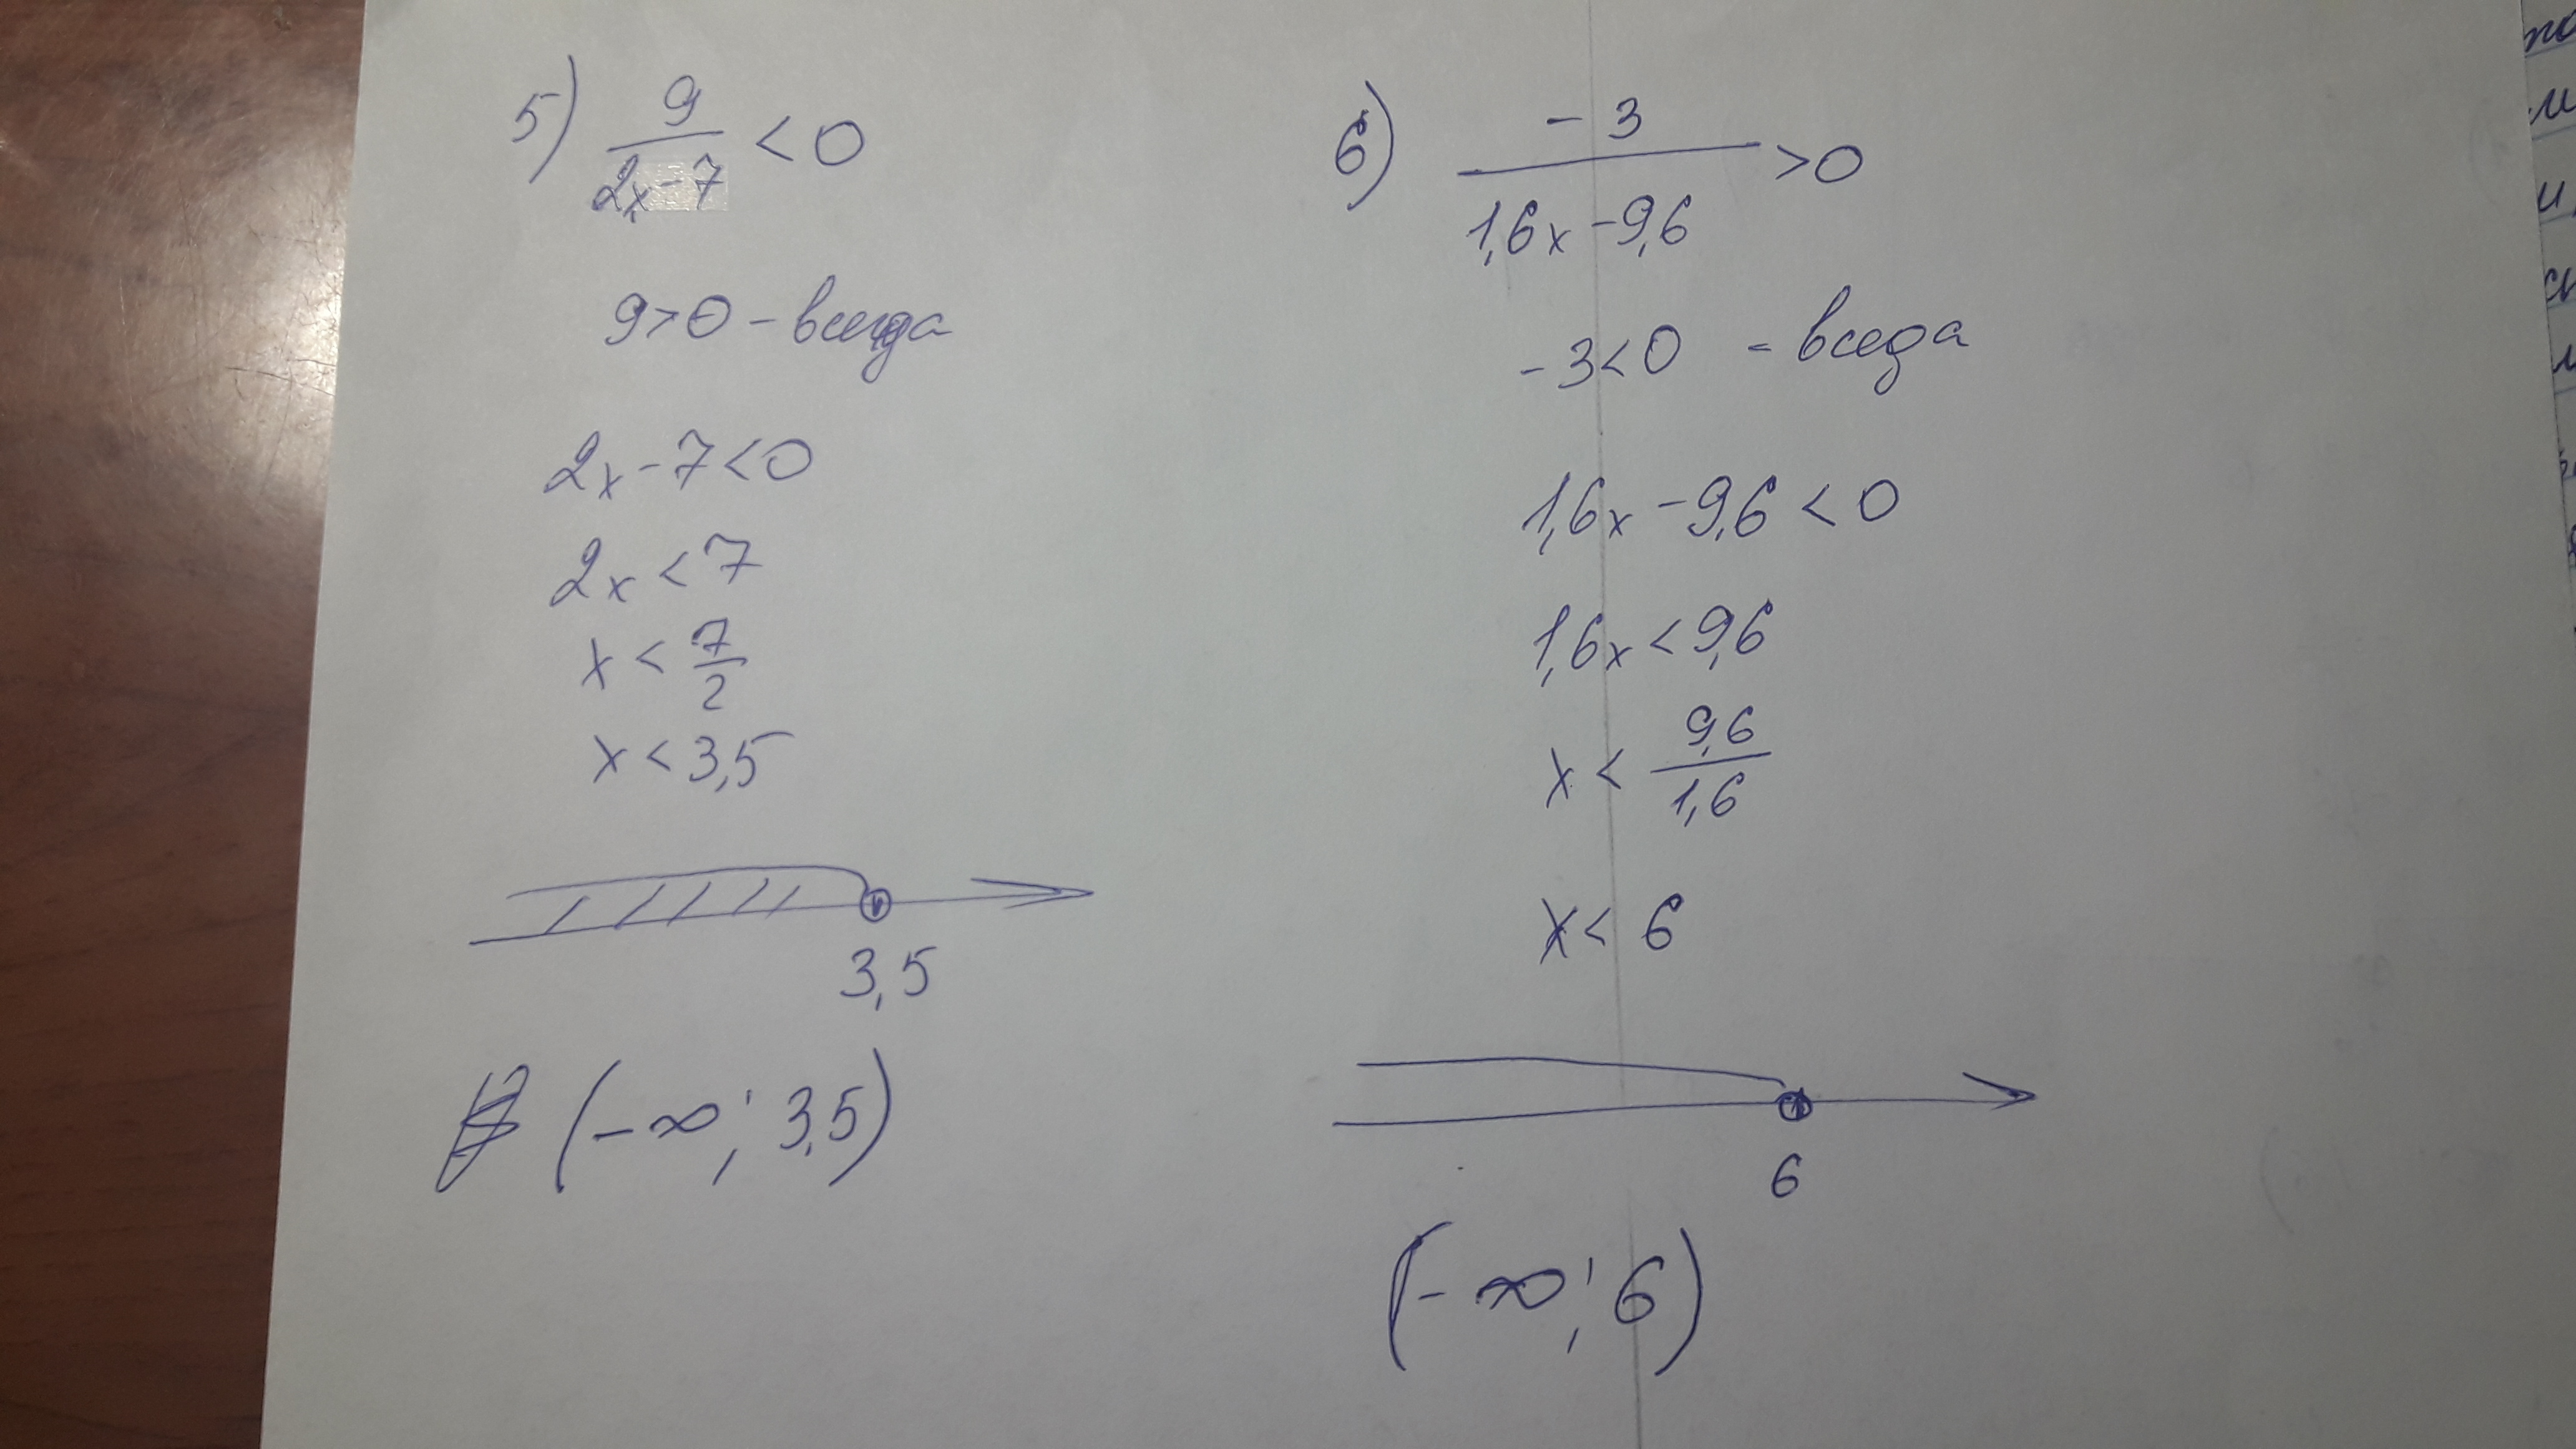 5) 9/(2x-7) < 0
9>0 - всегда
2x-7<0
2x<7
x < 7/2
x < 3,5
3,5
(-∞; 3,5)
6) -3/(1,6x-9,6) >0
-3<0 - всегда
1,6x-9,6<0
1,6x<9,6
x < 9,6/1,6
x < 6
6
(-∞; 6)